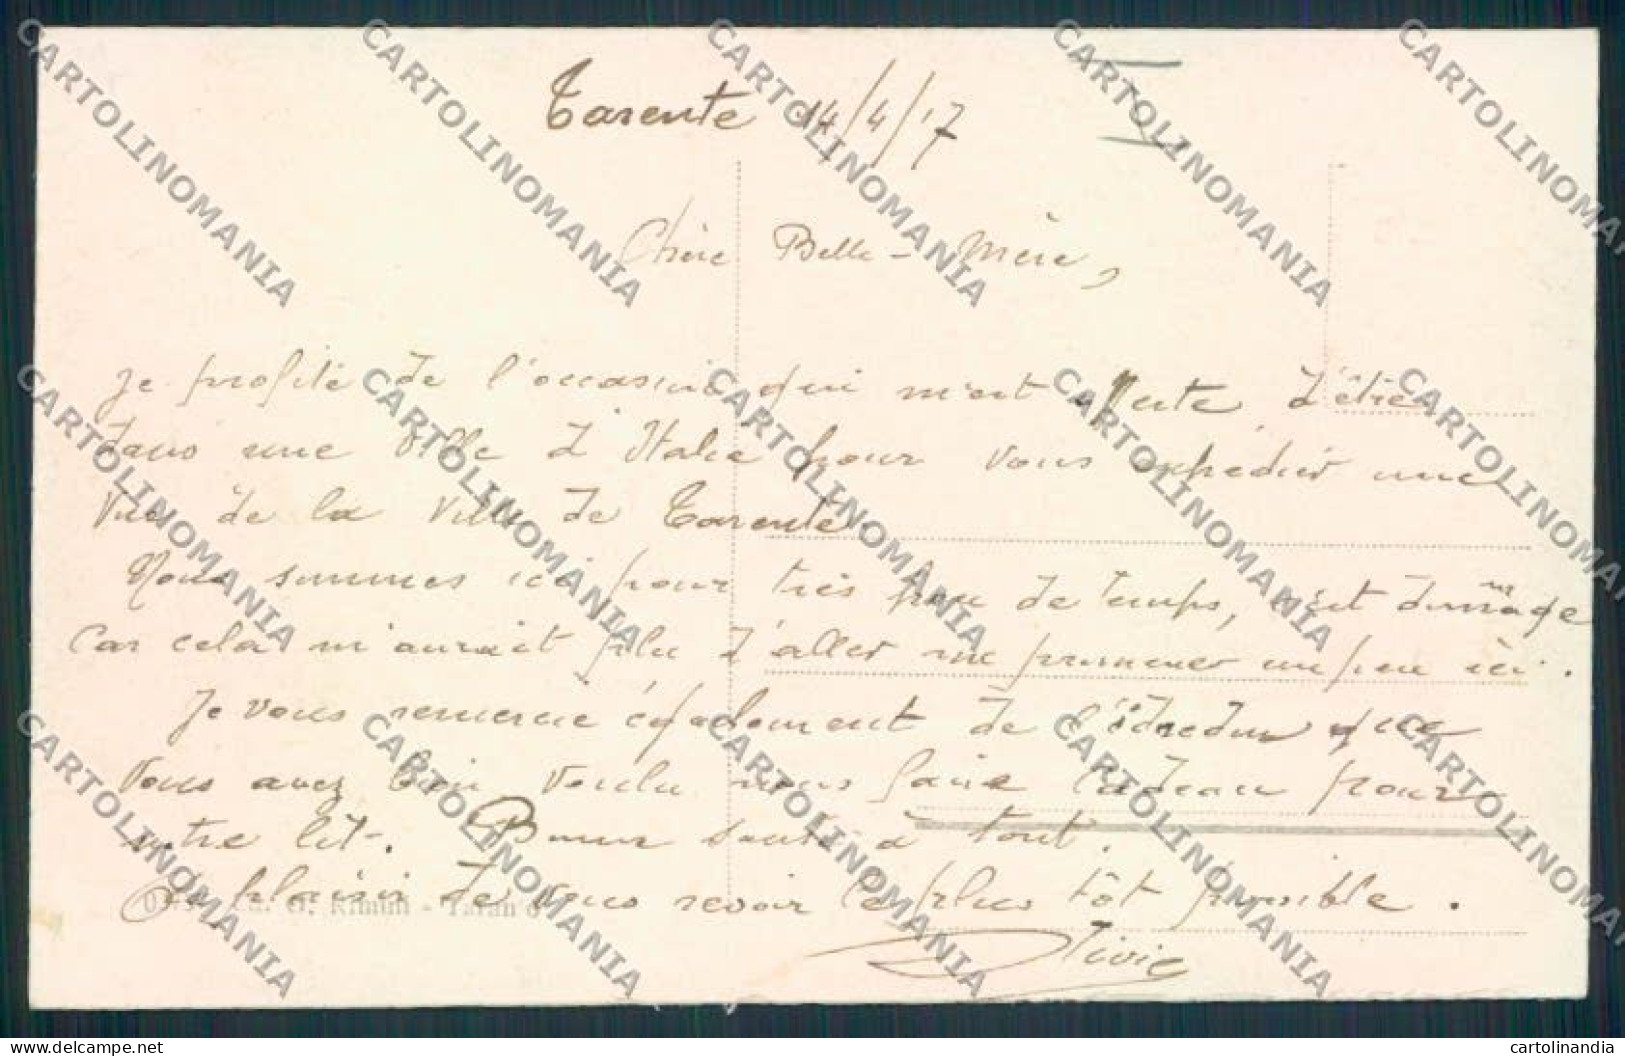 Tarente 14/4/17
Chère Belle-Mère,
Je profite de l'occasion qui m'est offerte d'être
dans une ville d'Italie pour vous expédier une
vue de la ville de Tarente.
Nous sommes ici pour très peu de temps, c'est dommage
car cela m'aurait plu d'aller me promener un peu ici.
Je vous remercie également de l'édredon que
vous avez bien voulu nous faire cadeau pour
notre lit. Bonne santé à tout.
Au plaisir de vous revoir le plus tôt possible.
G. Rimini - Taran o
CARTOLINOMANIA
delcampe.net
cartolinandia